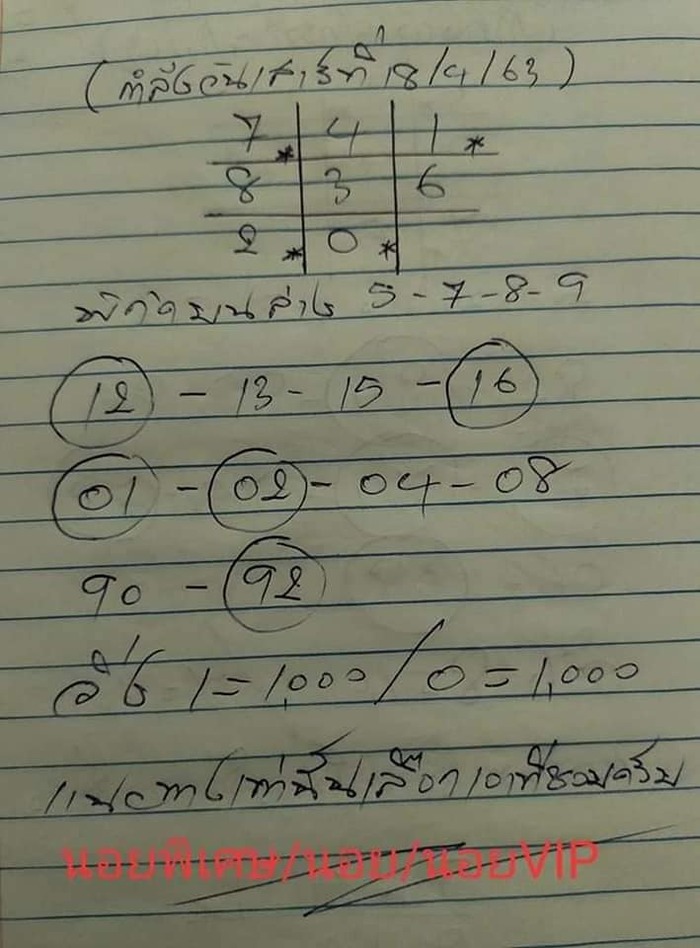 (กำลังวันเสาร์ที่ 18/4/63)
7 * 4 1 *
8 3 6
2 * 0 *
พิกัดบนล่าง 5-7-8-9
12 - 13 - 15 - 16
01 - 02 - 04 - 08
90 - 92
วิ่ง 1=1,000/0=1,000
แนวทางเท่านั้นเลือกเอาที่ชอบครับ
นอยพิเศษ/นอย/นอยVIP